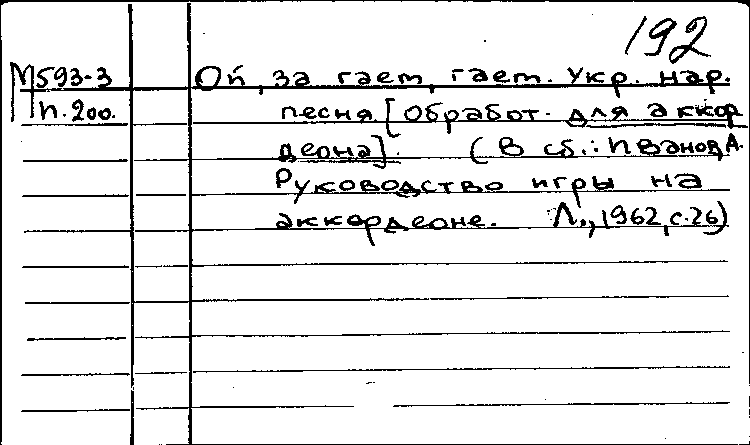 192
М593-3 Ой, за гаем, гаем. Укр. нар.
п. 200. песня [Обработ. для аккор
деона]. (В сб.: Иванов, А.
Руководство игры на
аккордеоне. Л., 1962, с. 26)